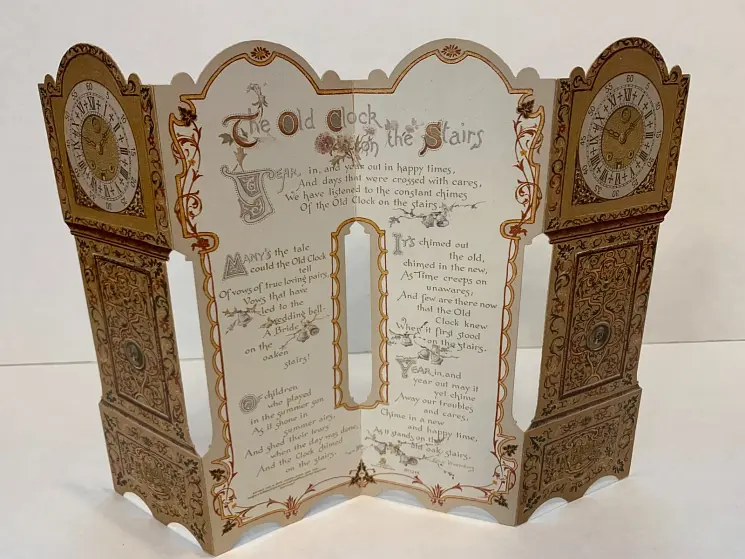 The Old Clock
on the Stairs
YEAR in, and year out in happy times,
And days that were crossed with cares,
We have listened to the constant chimes
Of the Old Clock on the stairs.
MANY'S the tale
could the Old Clock
tell
Of vows of true loving pairs,
Vows that have
led to the
wedding bell.
A Bride
on the
oaken
stairs!
O children
who played
in the summer sun
As it shone in
summer airs,
And shed their
when the day was done,
And the Clock chimed
on the stairs.
IT'S chimed out
the old,
chimed in the new,
As Time creeps on
unawares;
And few are there now
that the Old
Clock knew
When it first stood
on the stairs.
YEAR in, and
year out may it
yet chime
Away our troubles
and cares,
Chime in a new
and happy time,
As it stands on the
old oak stairs.